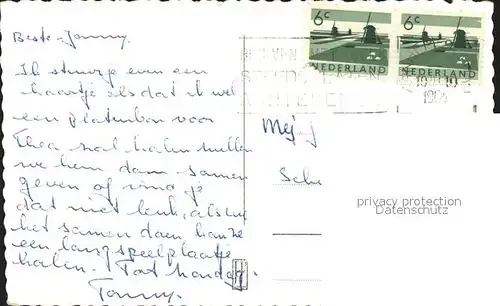 Beste Jonny.
Ik stuurp even een
kaartje als dat ik wel
een platenbon voor
Thea zal halen willen
we hem dan samen
geven of vind je
dat niet leuk, als
het samen dan
een langspeelplaatje
halen. Tot
Tonny.
6c 6c
NEDERLAND NEDERLAND
Mej. J
Sch
privacy protection
Datenschutz